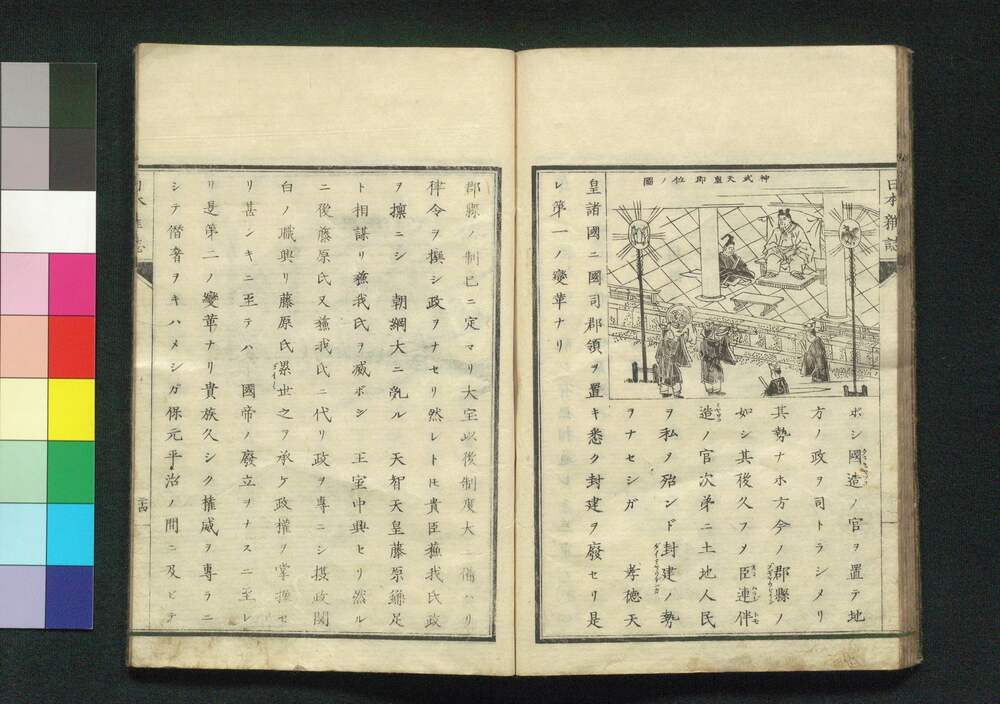 神武天皇即位ノ圖
ボシ國造ノ官ヲ置テ地
方ノ政ヲ司トラシメリ
其勢ナホ方今ノ郡縣ノ
如シ其後久フメ臣連伴
造ノ官次第ニ土地人民
ヲ私ノ殆ンド封建ノ勢
ヲナセシガ 孝德天
皇諸國ニ國司郡領ヲ置キ悉ク封建ヲ廢セリ是
レ第一ノ變革ナリ
郡縣ノ制已ニ定マリ大宝以後制度大ニ備ハリ
律令ヲ撰シ政ヲナセリ然レトモ貴臣蘓我氏政
ヲ擅ニシ 朝綱大ニ乱ル 天智天皇藤原鎌足
ト相謀リ蘓我氏ヲ滅ボシ 王室中興セリ然ル
ニ後藤原氏又蘓我氏ニ代リ政ヲ專ニシ摂政関
白ノ職興リ藤原氏累世之ヲ承ケ政權ヲ掌握セ
リ甚シキニ至テハ 國帝ノ廢立ヲナスニ至レ
リ是第二ノ變革ナリ貴族久シク權威ヲ專ラニ
シテ僭奢ヲキハメシガ保元平治ノ間ニ及ビテ